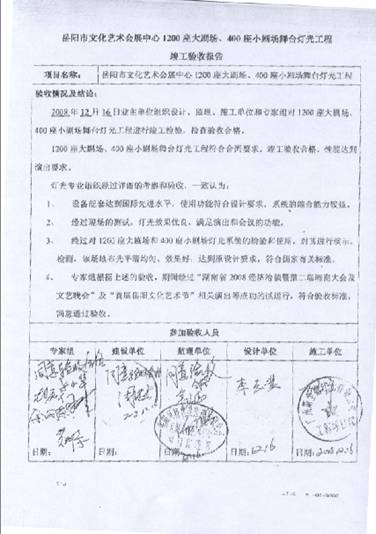 岳阳市文化艺术会展中心1200座大剧场、400座小剧场舞台灯光工程
竣工验收报告
项目名称: 岳阳市文化艺术会展中心1200座大剧场、400座小剧场舞台灯光工程
验收情况及结论:
2008年12月16日业主单位组织设计、监理、施工单位和专家组对1200座大剧场、
400座小剧场舞台灯光工程进行竣工检验,检查验收合格。
1200座大剧场、400座小剧场舞台灯光工程符合合同要求,竣工验收合格,性能达到
演出要求。
灯光专业组织经过详细的考察和验收,一致认为:
1、 设备配套达到国际先进水平,使用功能符合设计要求,系统的综合能力较强。
2、 经过现场的测试,灯光效果优良,满足演出和会议的功能。
3、 经过对1200座大剧场和400座小剧场灯光系统的检验和使用,对其进行演示、
检测,该场地布光平滑均匀、效果好,达到原设计要求,符合国家有关标准。
4、 专家组根据上述的验收,期间经过“湖南省2008经济洽谈暨第二届湘商大会及
文艺晚会”及“首届岳阳文化艺术节”相关演出等成功的试运行,符合验收标准,
同意通过验收。
参加验收人员
专家组 建设单位 监理单位 设计单位 施工单位
日期: 日期: 日期: 日期:12.16 日期:2008.12.16